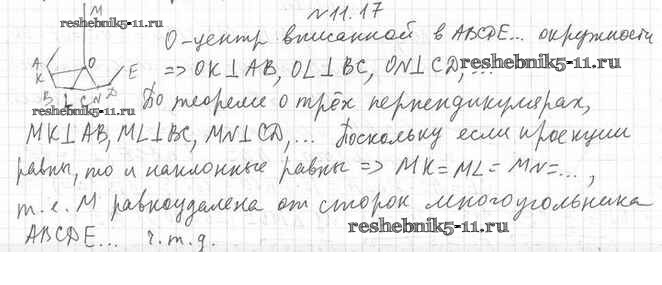 № 11.17
M
reshebnik5-11.ru
О-центр вписанной в ABCDE... окружности
A
K
O
E
=> OK⊥AB, OL⊥BC, ON⊥CD, ...
reshebnik5-11.ru
B L C N D
По теореме о трёх перпендикулярах,
MK⊥AB, ML⊥BC, MN⊥CD, ... Поскольку если проекции
равны, то и наклонные равны => MK = ML = MN = ... ,
т.е. M равноудалена от сторон многоугольника
reshebnik5-11.ru
ABCDE... ч.т.д.